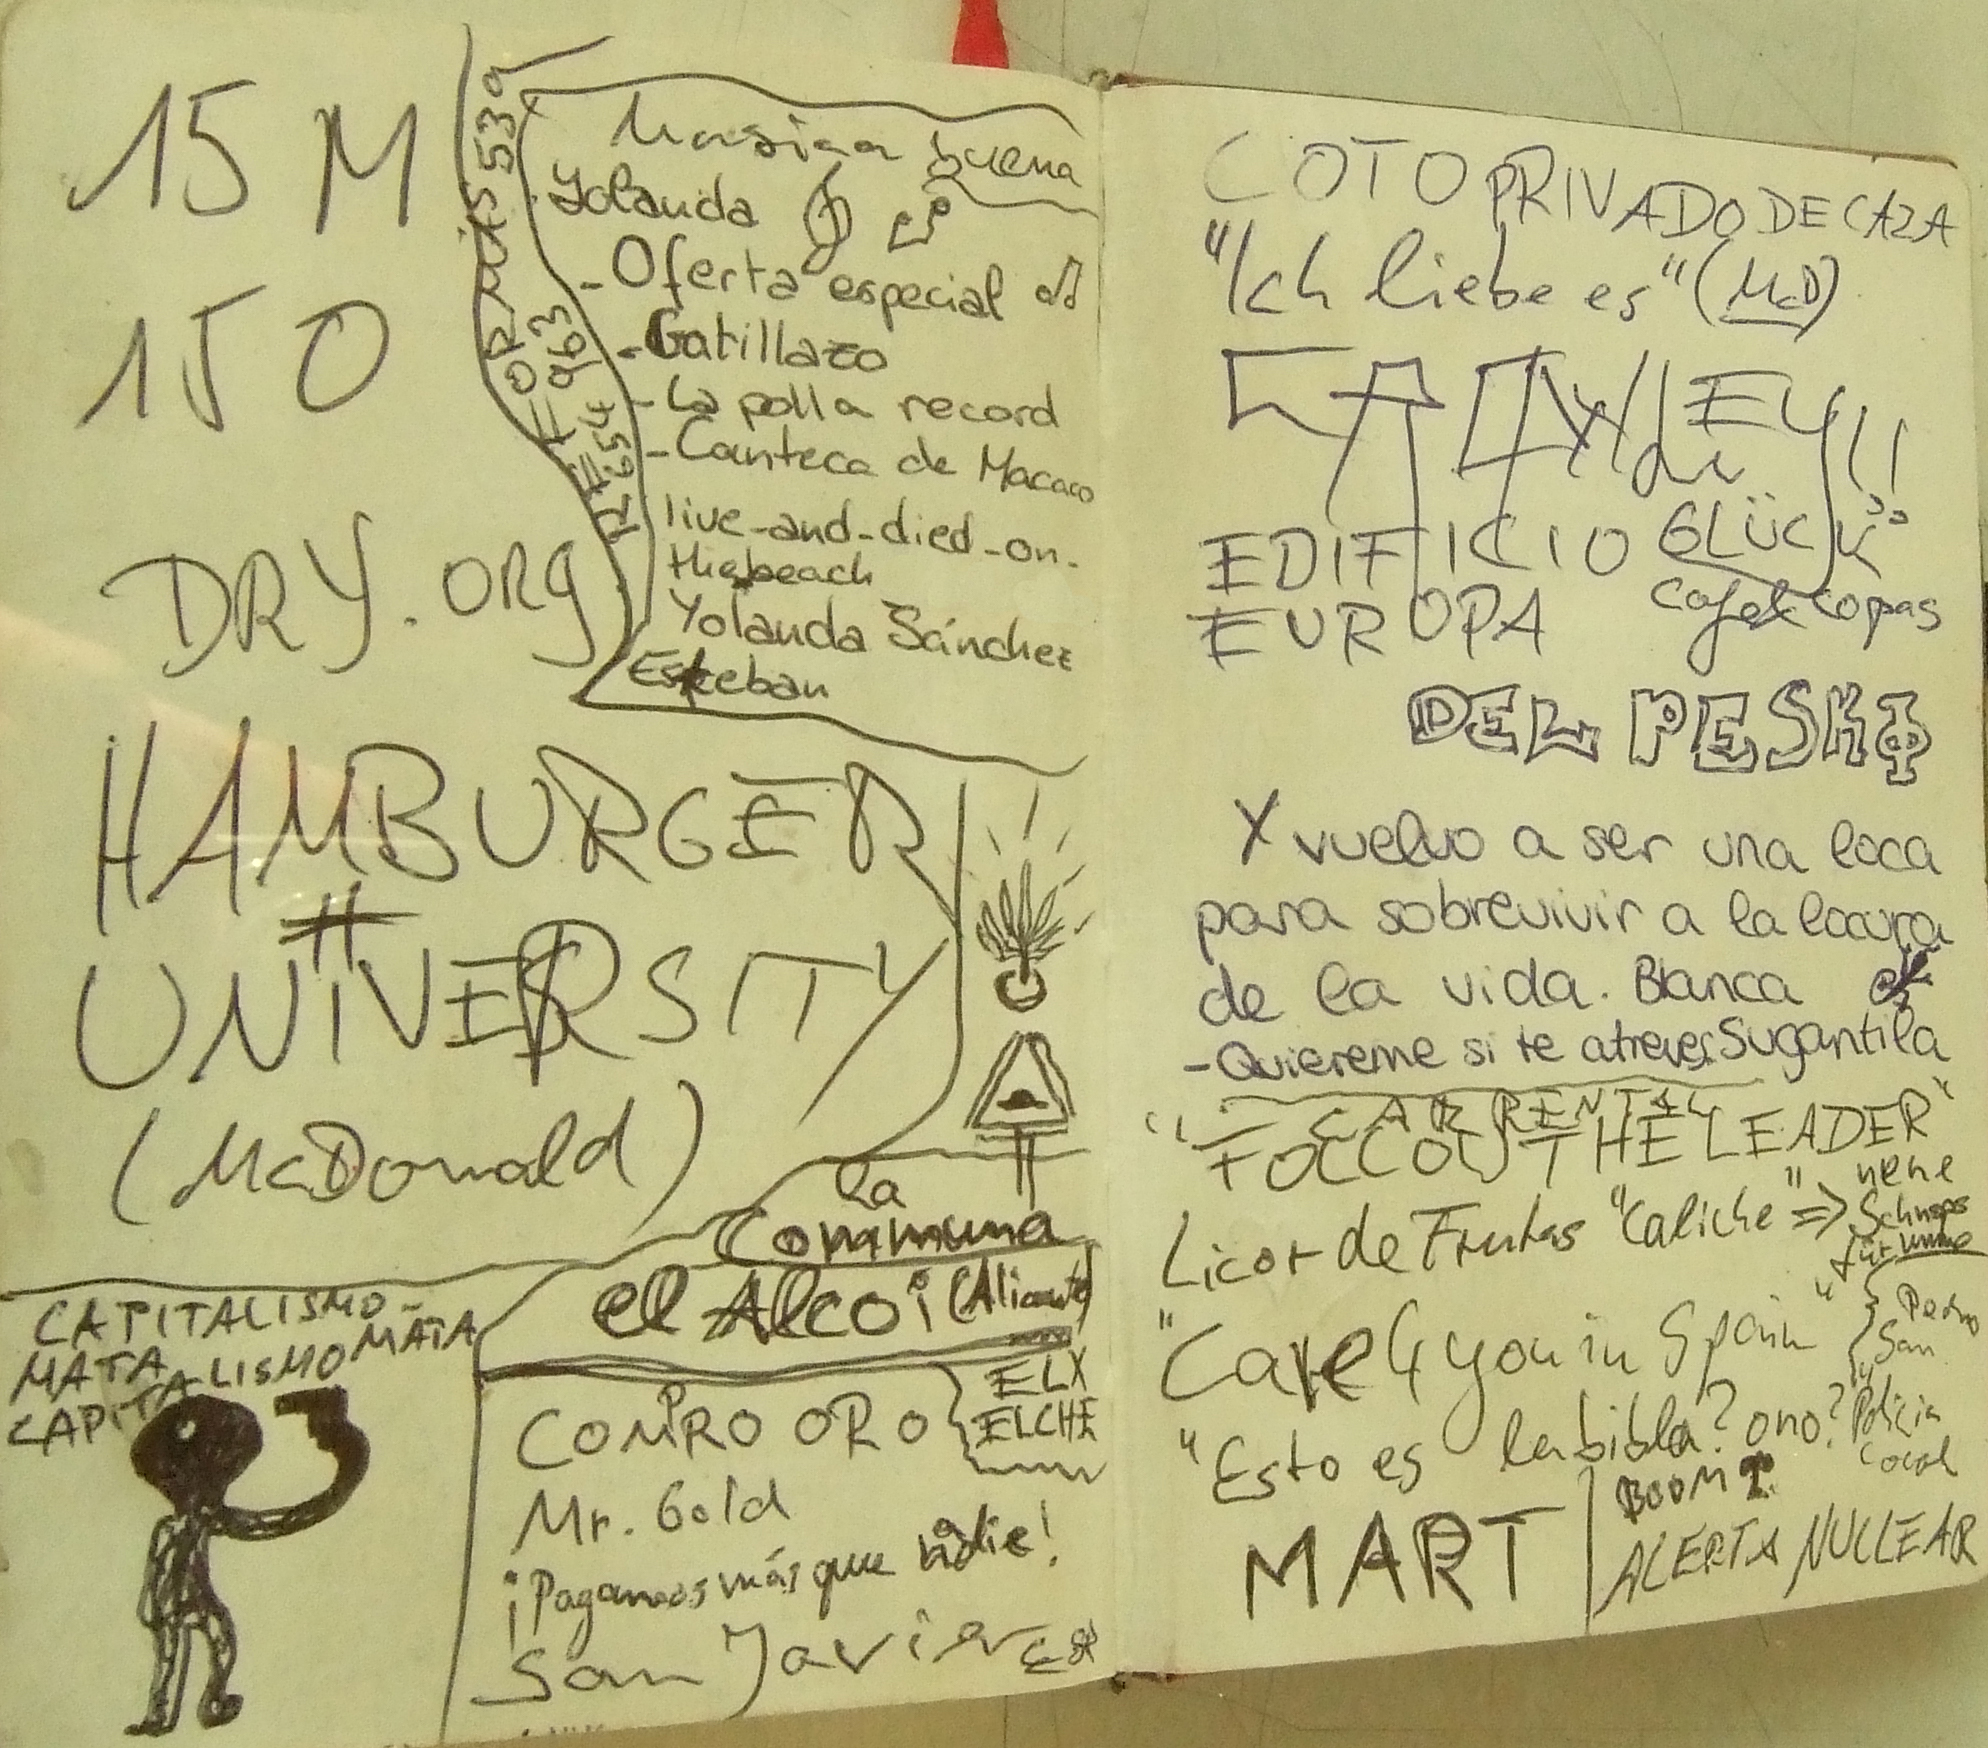 15 M
15 O
DRY.ORG
REFORMAS 539
654 963
Musica buena
Yolanda
- Oferta especial
- Gatillazo
- La polla record
- Canteca de Macaco
live-and-died-on-
the beach
Yolanda Sánchez
Esteban
HAMBURGER
UNIVERSITY
(McDonald)
la
Communa
el Alcoi (Alicante)
CAPITALISMO
MATA
CAPITALISMO MATA
COMPRO ORO
ELX
ELCHE
Mr. Gold
¡Pagamos más que nadie!
San Javier
COTO PRIVADO DE CAZA
"Ich liebe es" (McD)
EDIFICIO
EUROPA
GLÜCK
café & copas
DEL PESKO
X vuelvo a ser una loca
para sobrevivir a la locura
de la vida. Blanca
- Quiereme si te atreves Sugantila
CAR RENTAL
"FOLLOW THE LEADER"
Licor de Frutas "Caliche" => nene
Schnaps
für
"Care 4 you in Spain"
Pedro
San
"Esto es la bibla? o no?
Policia
Local
MART
BOOM
ALERTA NUCLEAR